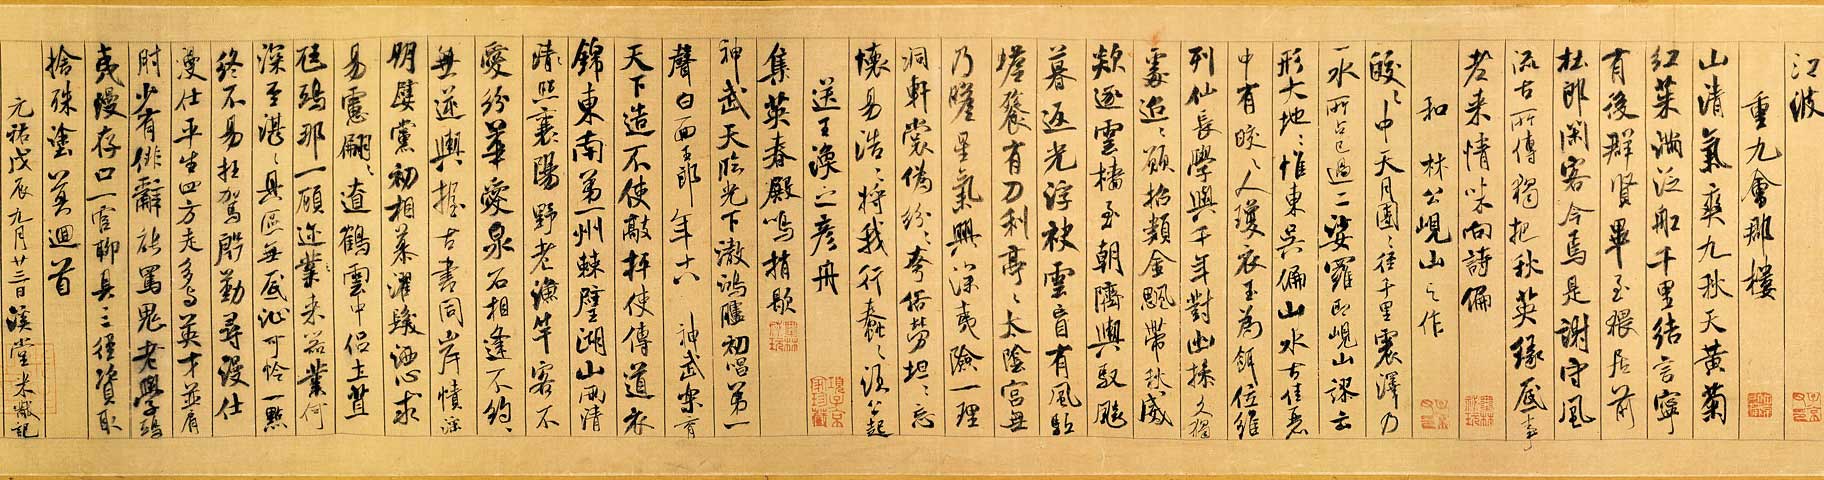 江波
重九會郡樓
山清氣爽九秋天黃菊
紅茱滿泛船千里結言寧
有後群賢畢至猥居前
杜郎閑客今焉是謝守風
流古所傳獨把秋英緣底事
老來情味向詩偏
和林公峴山之作
皎皎中天月團團徑千里震澤乃
一水所占已過二娑羅即峴山謬云
形大地地惟東吳偏山水古佳麗
中有皎皎人瓊衣玉為餌位維
列仙長學與千年對幽操久獨
處迢迢願招類金飈帶秋威
欻逐雲檣至朝隮輿馭飈
暮返光浮袂雲盲有風馭
蟾餮有刀利亭亭太陰宮無
乃瞻星氣興深夷險一理
洞軒裳偽紛紛夸俗勞坦坦忘
懷易浩浩將我行蠢蠢須公起
送王渙之彥舟
集英春殿鳴捎歇
神武天臨光下澈鴻臚初唱第一
聲白面玉郎年十八神武樂育
天下造不使敲枰使傳道衣
錦東南第一州棘璧湖山兩清
晴照襄陽野老漁竿客不
愛紛華愛泉石相逢不約約
無逆輿握古書同岸幘淫
朋嬖黨初相慕濯髮洒心求
易慮翩翩遼鶴雲中侶土苴
尪鴟那一顧邇來器業何
深至湛湛具區無底沚可怜一點
終不易枉駕殷勤尋漫仕
漫仕平生四方走多與英才並肩
肘少有俳辭能罵鬼老學鴟
夷漫存口一官聊具三徑資取
捨殊塗莫迴首
元祐戊辰九月廿三日溪堂米黻記